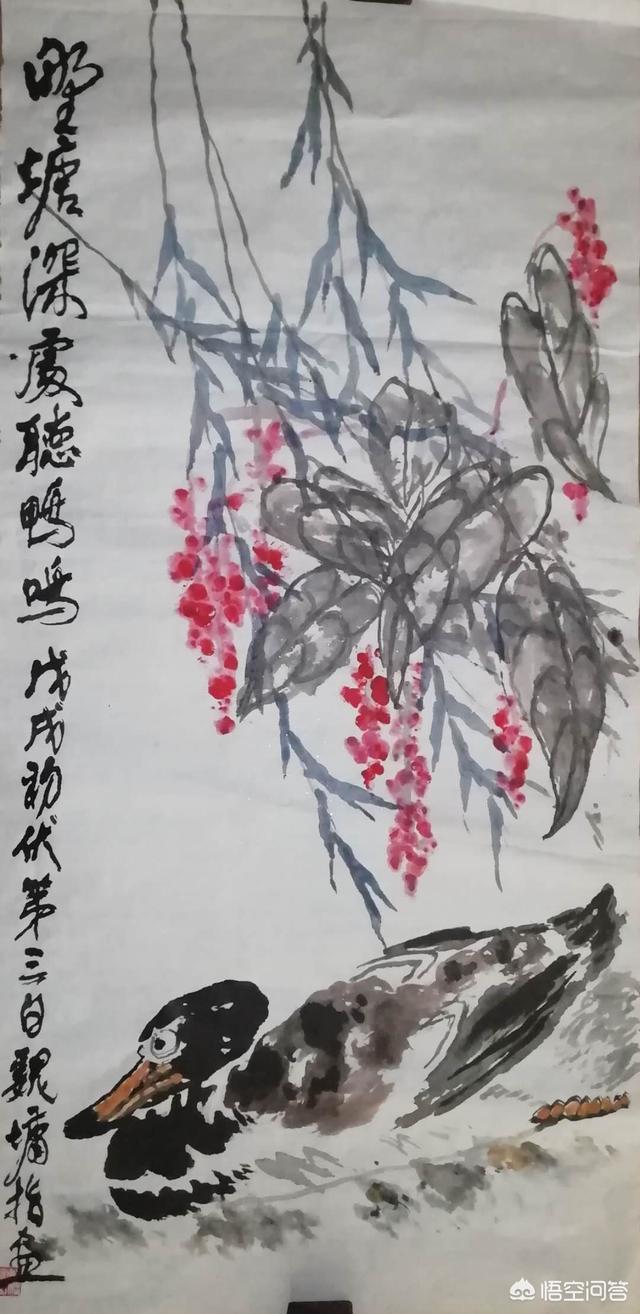 野塘深處聽鴨鳴 戊戌初伏第三日魏墉指畫
悟空问答